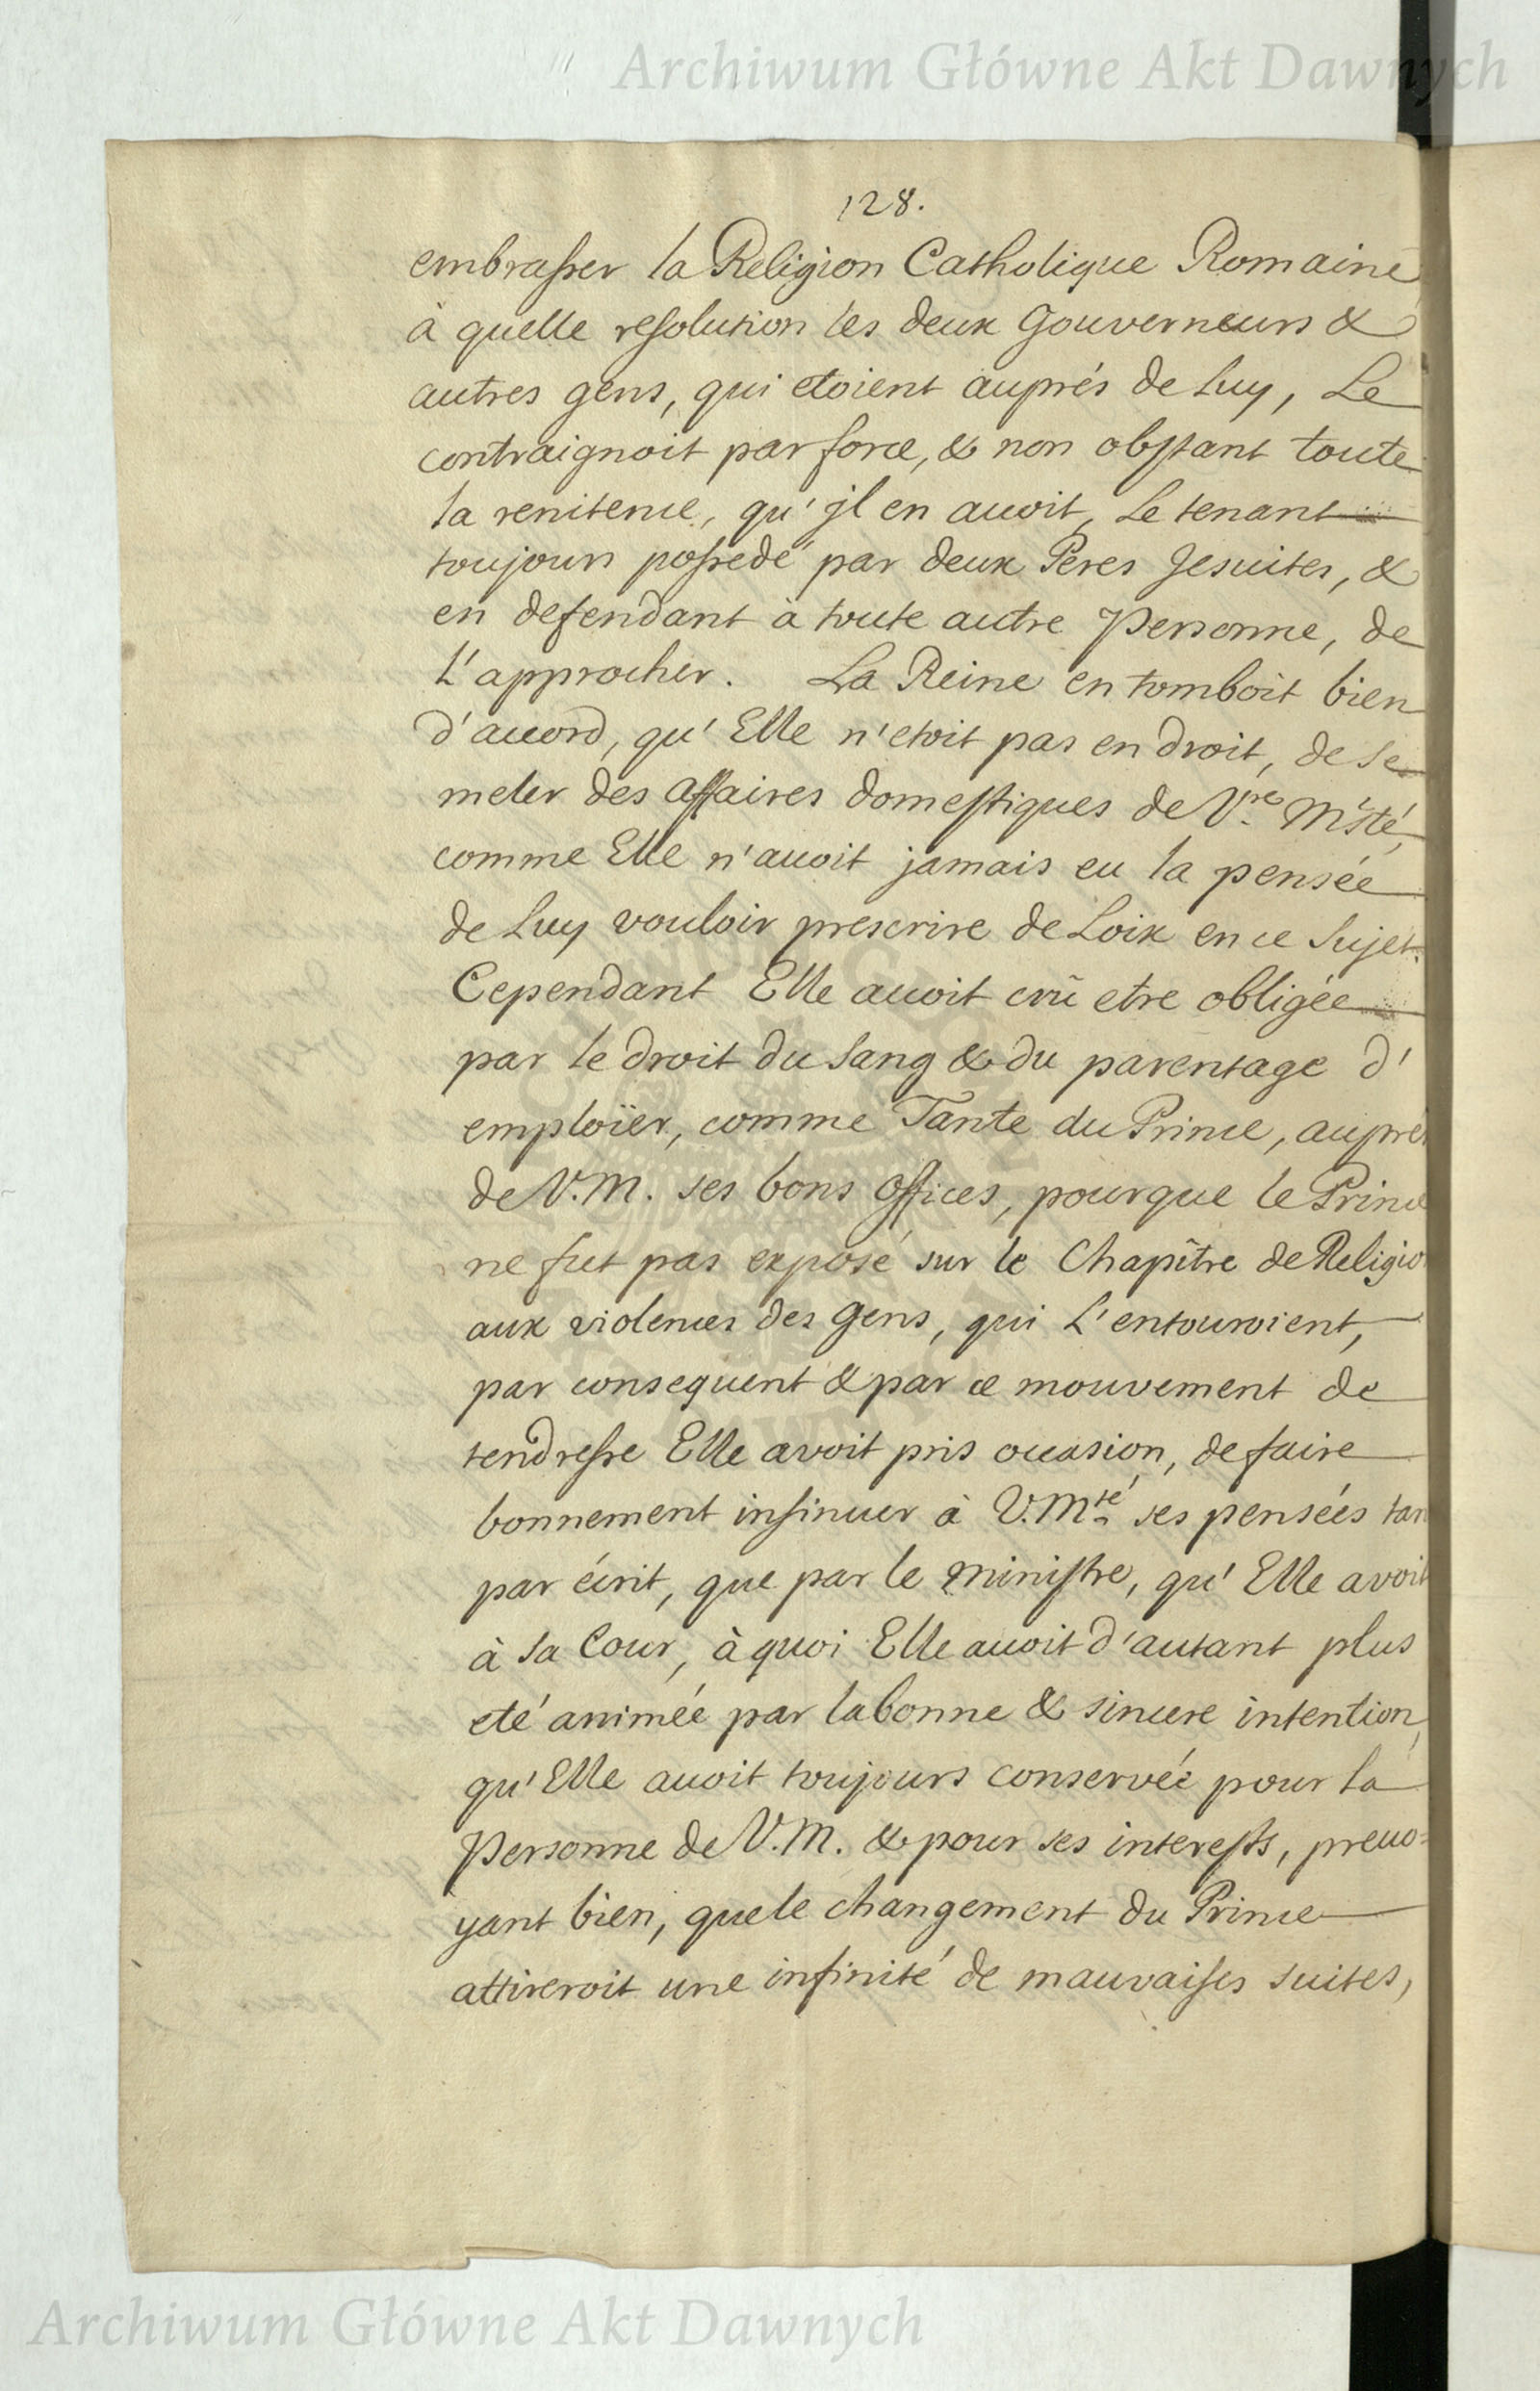 Archiwum Główne Akt Dawnych
128.
embrasser la Religion Catholique Romaine
à quelle resolution les deux Gouverneurs &
autres gens, qui etoient auprés de Luy, Le
contraignoit par force, & non obstant toute
la renitence, qu'jl en auoit, Le tenant
toujours possedé par deux Peres Jesuites, &
en defendant à toute autre Personne, de
L'approcher. La Reine en tomboit bien
d'accord, qu'Elle n'etoit pas en droit, de se
meler des affaires domestiques de Vre. Mstè,
comme Elle n'auoit jamais eu la pensée
de Luy vouloir prescrire de Loix en ce sujet.
Cependant Elle auoit crû etre obligée
par le droit du sang & du parentage d'
emploïer, comme Tante du Prince, auprés
de V.M. ses bons offices, pourque le Prince
ne fut pas exposé sur le Chapître de Religio
aux violences des gens, qui L'entouroient,
par consequent & par ce mouvement de
tendresse Elle avoit pris occasion, de faire
bonnement insinuer à V.Mté ses pensées tan
par écrit, que par le ministre, qu'Elle avoit
à sa Cour, à quoi Elle auoit d'autant plus
eté animée par la bonne & sincere intention,
qu'Elle auoit toujours conservée pour la
Personne de V.M. & pour ses interests, preuo=
yant bien, que le changement du Prince
attireroit une infinité de mauvaises suites,
Archiwum Główne Akt Dawnych